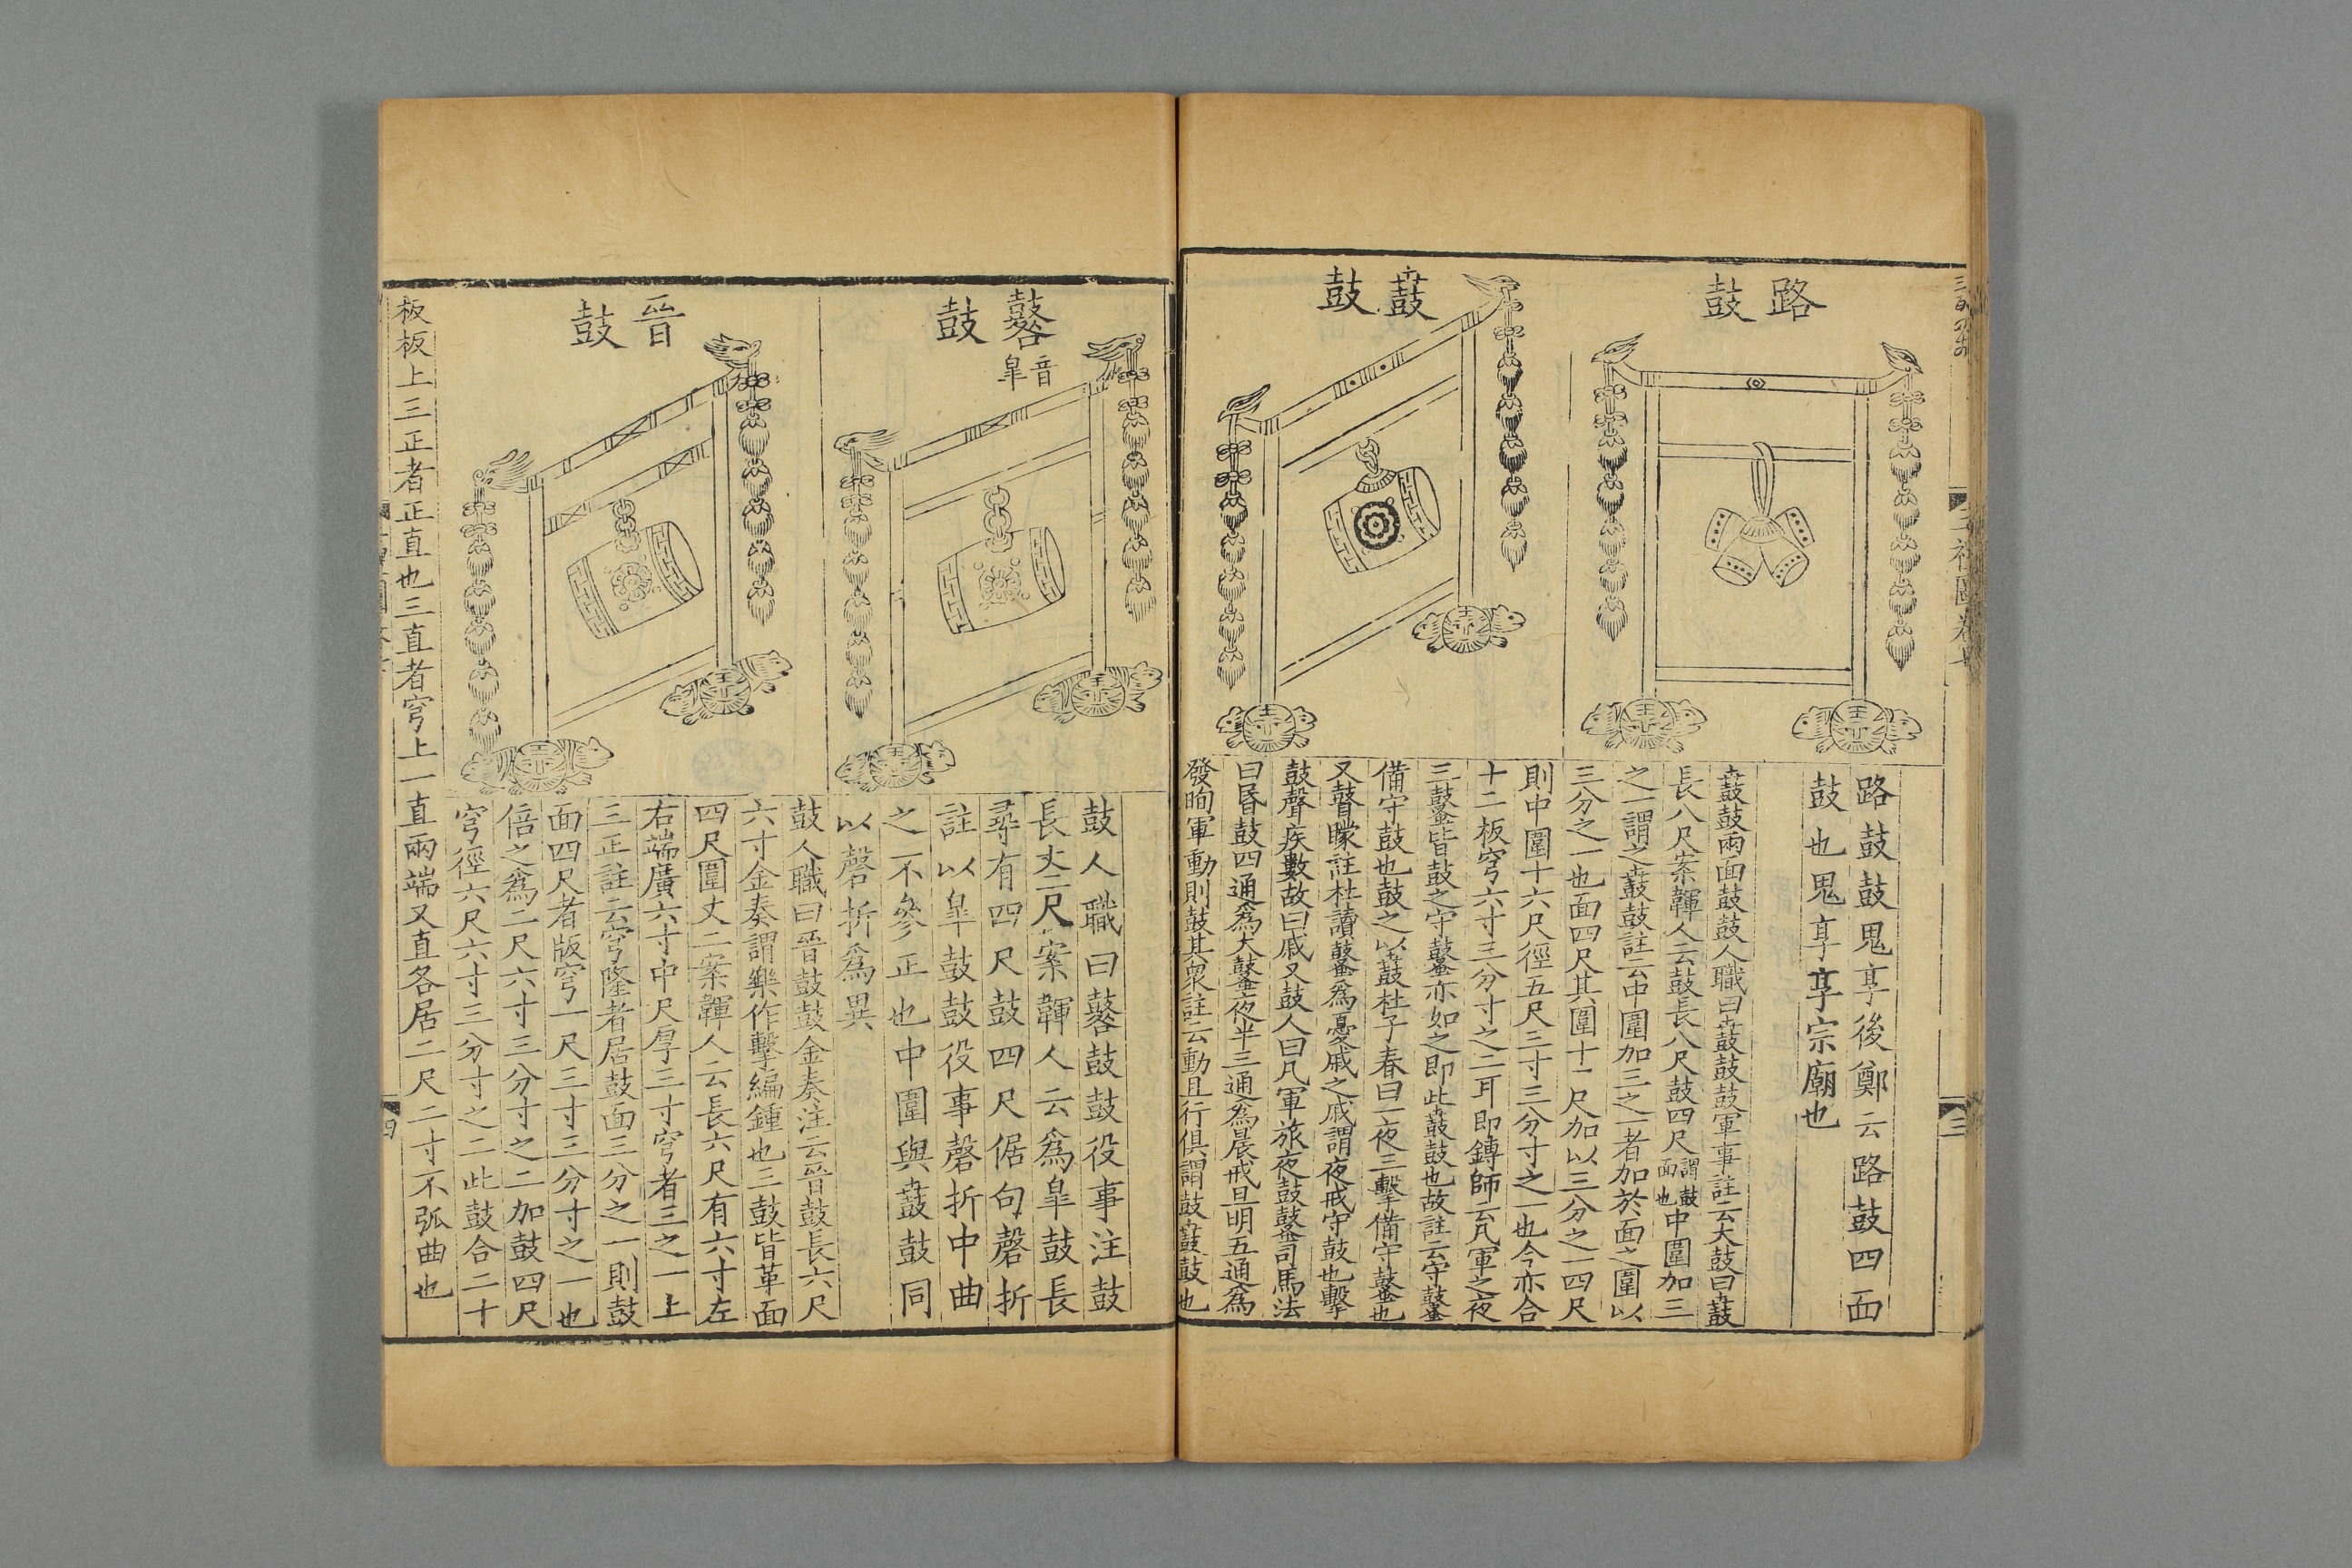 路鼓
鼖鼓
路鼓鼓鬼享後鄭云路鼓四面
鼓也鬼享享宗廟也
鼖鼓兩面鼓鼓人職曰鼖鼓鼓軍事註云大鼓曰鼖
長八尺案韗人云鼓長八尺鼓四尺謂鼓面也中圍加三
之一謂之鼖鼓註云中圍加三之一者加於面之圍以
三分之一也面四尺其圍十二尺加以三分之一四尺
則中圍十六尺徑五尺三寸三分寸之一也今亦合
十二板穹六寸三分寸之二耳即鎛師云凡軍之夜
三鼜皆鼓之守鼜亦如之即此鼖鼓也故註云守鼜
備守鼓也鼓之以鼖鼓杜子春曰一夜三擊備守鼜也
又瞽矇註杜讀鼜為憂戚之戚謂夜戒守鼓也擊
鼓聲疾數故曰戚又鼓人曰凡軍旅夜鼓鼜司馬法
曰昏鼓四通為大鼜夜半三通為晨戒旦明五通為
發昫軍動則鼓其衆註云動且行俱謂鼓鼖鼓也
三禮圖卷七
三
鼛鼓
音皐
晉鼓
鼓人職曰鼛鼓鼓役事注鼓
長丈二尺案韗人云為皐鼓長
尋有四尺鼓四尺倨句磬折
註以皐鼓鼓役事磬折中曲
之不參正也中圍與鼖鼓同
以磬折為異
鼓人職曰晉鼓鼓金奏注云晉鼓長六尺
六寸金奏謂樂作擊編鍾也三鼓皆革面
四尺圍丈二案韗人云長六尺有六寸左
右端廣六寸中尺厚三寸穹者三之一上
三正註云穹隆者居鼓面三分之一則鼓
面四尺者版穹一尺三寸三分寸之一也
倍之為二尺六寸三分寸之二加鼓四尺
穹徑六尺六寸三分寸之二此鼓合二十
板板上三正者正直也三直者穹上一直兩端又直各居二尺二寸不弧曲也
四